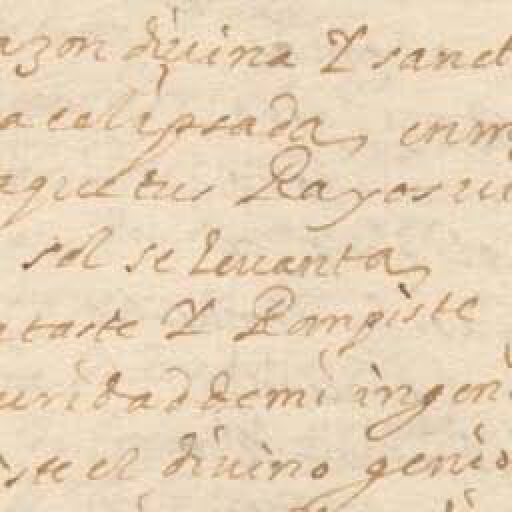 azon divina Y sanct
a eclipsada, enm
aque tus Rayos vi
sol se levanta,
ataste Y Rompiste
uridad de mi ingeni
iste el divino genio